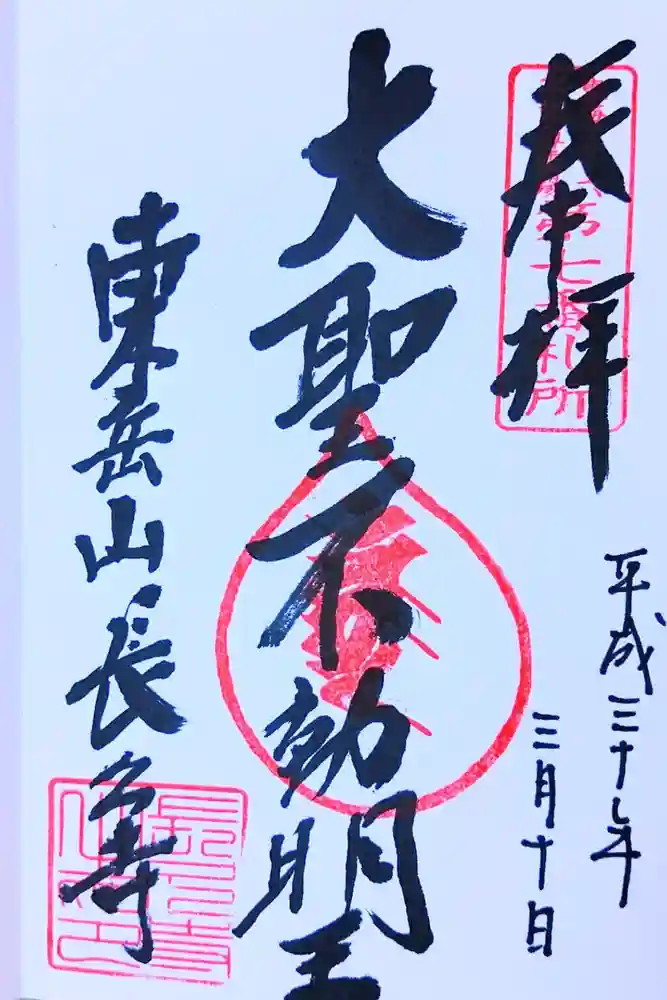 奉拝
第七番札所
平成三十年
三月十日
大聖不動明王
東岳山長久寺